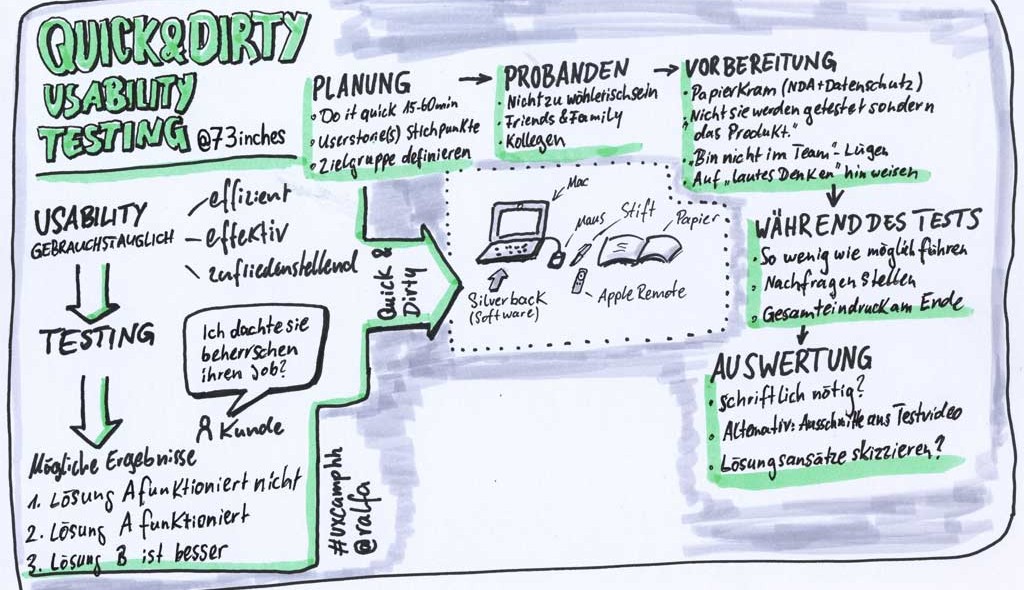 QUICK&DIRTY
USABILITY
TESTING @73inches
USABILITY
GEBRAUCHSTAUGLICH
effizient
effektiv
zufriedenstellend
TESTING
Ich dachte sie
beherrschen
ihren Job?
Kunde
Mögliche Ergebnisse
1. Lösung A funktioniert nicht
2. Lösung A funktioniert
3. Lösung B ist besser
#uxcamphh
@ralfa
Quick &
Dirty
PLANUNG
• Do it quick 15-60min
• Userstorie(s) Stichpunkte
• Zielgruppe definieren
PROBANDEN
• Nicht zu wählerisch sein
• Friends & Family
• Kollegen
VORBEREITUNG
• Papierkram (NDA+Datenschutz)
• "Nicht sie werden getestet sondern
das Produkt."
• "Bin nicht im Team"- Lügen
• Auf "lautes Denken" hinweisen
Mac
Maus
Stift
Papier
Silverback
(Software)
Apple Remote
WÄHREND DES TESTS
• So wenig wie möglich führen
• Nachfragen Stellen
• Gesamteindruck am Ende
AUSWERTUNG
• schriftlich nötig?
• Alternativ: Ausschnitte aus Testvideo
• Lösungsansätze skizzieren?